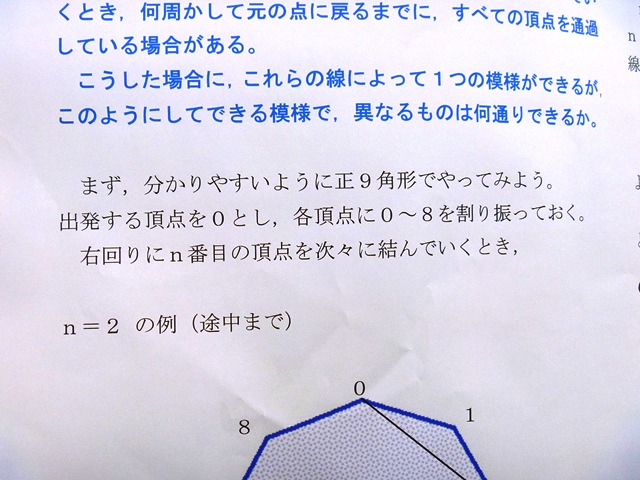 くとき，何周かして元の点に戻るまでに，すべての頂点を通過
している場合がある。
こうした場合に，これらの線によって１つの模様ができるが，
このようにしてできる模様で，異なるものは何通りできるか。
まず，分かりやすいように正９角形でやってみよう。
出発する頂点を０とし，各頂点に０～８を割り振っておく。
右回りにｎ番目の頂点を次々に結んでいくとき，
ｎ＝２ の例（途中まで）
0
1
8
n
線